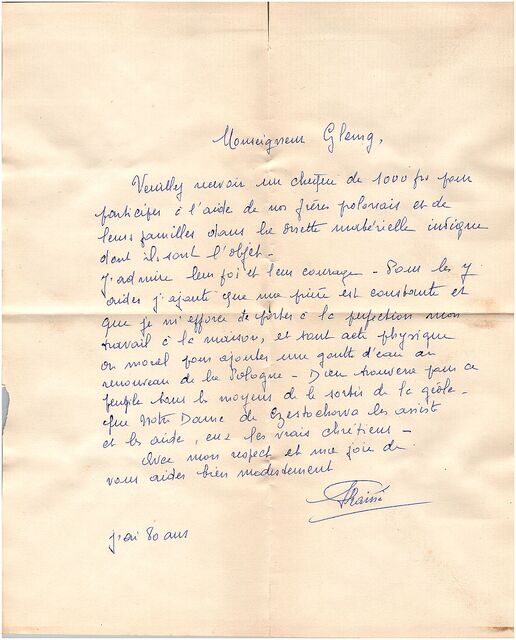 Monseigneur Glemp,
Veuillez recevoir un chèque de 1000 frs pour
participer à l'aide de nos frères polonais et de
leurs familles dans la disette matérielle indigne
dont ils sont l'objet -
J'admire leur foi et leur courage - Pour les y
aider j'ajoute que ma prière est constante et
que je m'efforce de porter à la perfection mon
travail à la maison, et tout acte physique
ou moral pour ajouter une goutte d'eau au
renouveau de la Pologne - Dieu trouvera pour ce
peuple tous les moyens de le sortir de la geôle -
Que Notre Dame de Czestochowa les assiste
et les aide, eux les vrais chrétiens -
Avec mon respect et ma joie de
vous aider bien modestement
j'ai 80 ans